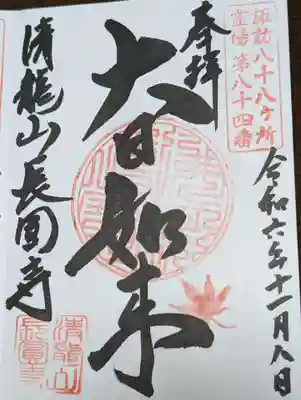 諏訪八十八ヶ所
霊場第八十四番
奉拝
令和六年十一月八日
大日如来
清龍山長圓寺
清龍山
長圓寺